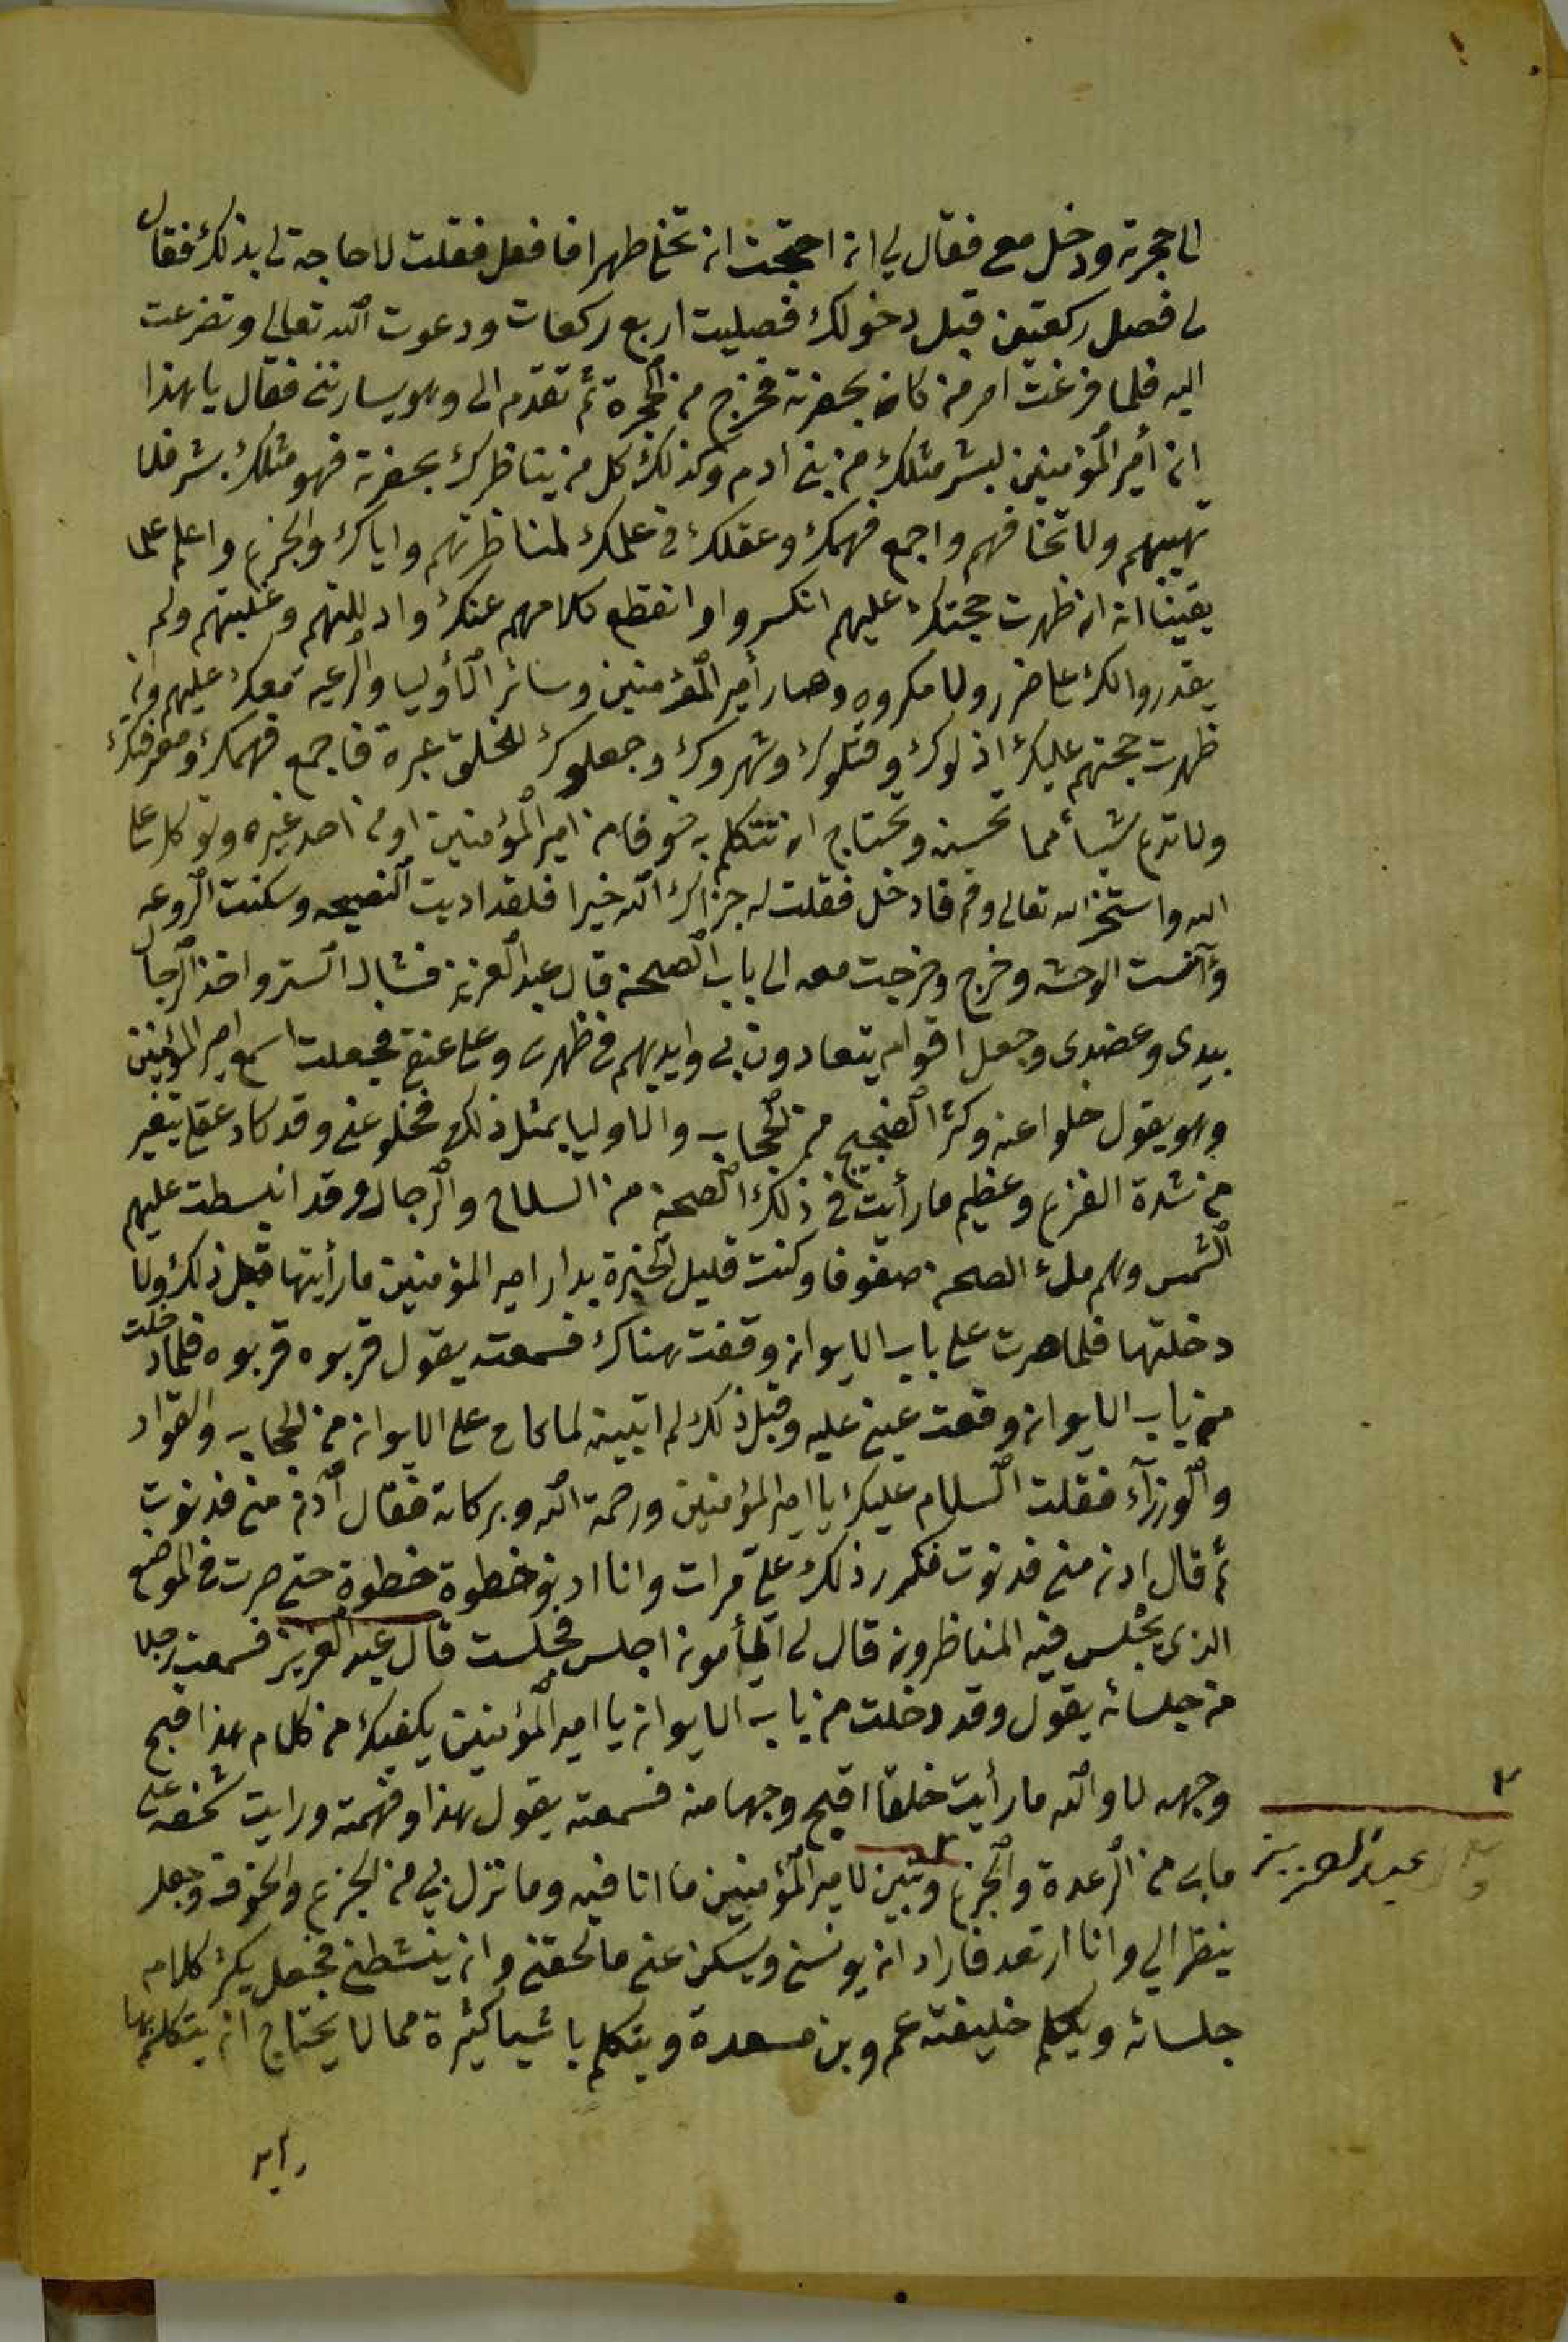 الى حجرته ودخل معي فقال لي ان احتجت ان تخلى طهرا فافعل فقلت لا حاجة لي بذلك فقال
لي فصل ركعتين قبل دخولك فصليت اربع ركعات ودعوت الله تعالى وتضرعت
اليه فلما فرغت امر من كان بحضرته فخرج من الحجرة ثم تقدم الي وهو يسارني فقال يا هذا
ان أمير المؤمنين لبشر مثلك من بني ادم وكذلك كل من يناظرك بحضرته فهو مثلك بشر فلا
تهيبهم ولا تخافهم واجمع فهمك وعقلك في علمك لمناظرتهم واياك والجزع واعلم علما
يقينا انه ان ظهرت حجتك عليهم انكسروا وانقطع كلامهم عنك واذللتهم وغلبتهم ولم
يقدروا لك على ضرر ولا مكروه وصار أمير المؤمنين وسائر الأوليا والرعيه معك عليهم وان
ظهرت حجتهم عليك اذلوك وقتلوك وشهروك وجعلوك للخلق عبرة فاجمع فهمك ومعرفتك
ولا تدع شيأ مما تحسنه وتحتاج ان تتكلم به خوفا من امير المؤمنين او من احد غيره وتوكل على
الله واستخر الله تعالى وقم فادخل فقلت له جزاك الله خيرا فلقد اديت النصيحه وسكنت الروعه
وآنست الوحشه وخرج وخرجت معه الى باب الصحن قال عبد العزيز فشال الستر واخذ الرجال
بيدي وعضدي وجعل اقوام يتعادون بي وايديهم في ظهري وعلى عنقي فجعلت اسمع امير المؤمنين
وهو يقول خلوا عنه وكثر الضجيج من الحجاب والاوليا بمثل ذلك فخلو عني وقد كاد عقلي يتغير
من شدة الفزع وعظيم ما رأيت في ذلك الصحن من السلاح والرجال وقد انبسطت عليهم
الشمس وهم ملؤ الصحن صفوفا وكنت قليل الخبرة بدار امير المؤمنين ما رأيتها قبل ذلك ولا
دخلتها فلما صرت على باب الايوان وقفت هناك فسمعته يقول قربوه قربوه فلما دخلت
من باب الايوان وقعت عيني عليه وقبل ذلك لم اتبينه لما كان على الايوان من الحجاب والقواد
والوزرآء فقلت السلام عليك يا امير المؤمنين ورحمة الله وبركاته فقال أدن مني فدنوت
ثم قال ادن مني فدنوت فكرر ذلك علي مرات وانا ادنو خطوة خطوة حتى صرت في الموضع
الذي يجلس فيه المناظرون قال لي المأمون اجلس فجلست قال عبد العزيز فسمعت رجلا
من جلسائه يقول وقد دخلت من باب الايوان يا امير المؤمنين يكفيك من كلام هذا قبح
وجهه لا والله ما رأيت خلقا اقبح وجها منه فسمعته يقول هذا وفهمته ورايت شخصه على
ما بي من الرعدة والجزع وتبين لامير المؤمنين ما انا فيه وما نزل بي من الجزع والخوف وجعل
عبد العزيز
ينظر الي وانا ارتعد فاراد ان يونسني ويسكن عني ما لحقني وان ينشطني فجعل يكثر كلام
جلسائه ويكلم خليفته عمرو بن مسعدة ويتكلم باشيا كثيرة مما لا يحتاج ان يتكلم بها